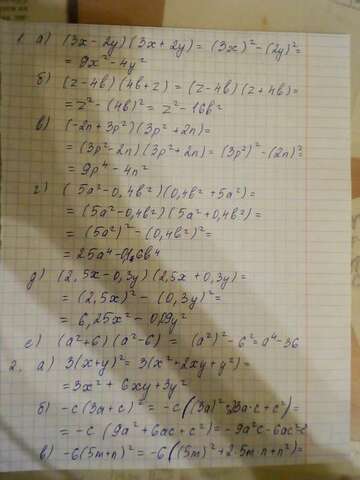 1. а) (3x - 2y)(3x + 2y) = (3x)² - (2y)² =
= 9x² - 4y²
б) (z - 4b)(4b + z) = (z - 4b)(z + 4b) =
= z² - (4b)² = z² - 16b²
в) (-2n + 3p²)(3p² + 2n) =
= (3p² - 2n)(3p² + 2n) = (3p²)² - (2n)² =
= 9p⁴ - 4n²
г) (5a² - 0,4b²)(0,4b² + 5a²) =
= (5a² - 0,4b²)(5a² + 0,4b²) =
= (5a²)² - (0,4b²)² =
= 25a⁴ - 0,16b⁴
д) (2,5x - 0,3y)(2,5x + 0,3y) =
= (2,5x)² - (0,3y)² =
= 6,25x² - 0,09y²
е) (a² + 6)(a² - 6) = (a²)² - 6² = a⁴ - 36
2. а) 3(x + y)² = 3(x² + 2xy + y²) =
= 3x² + 6xy + 3y²
б) -c(3a + c)² = -c((3a)² + 3a·c + c²) =
= -c(9a² + 6ac + c²) = -9a²c - 6ac²
в) -6(5m + n)² = -6((5m)² + 2·5m·n + n²) =